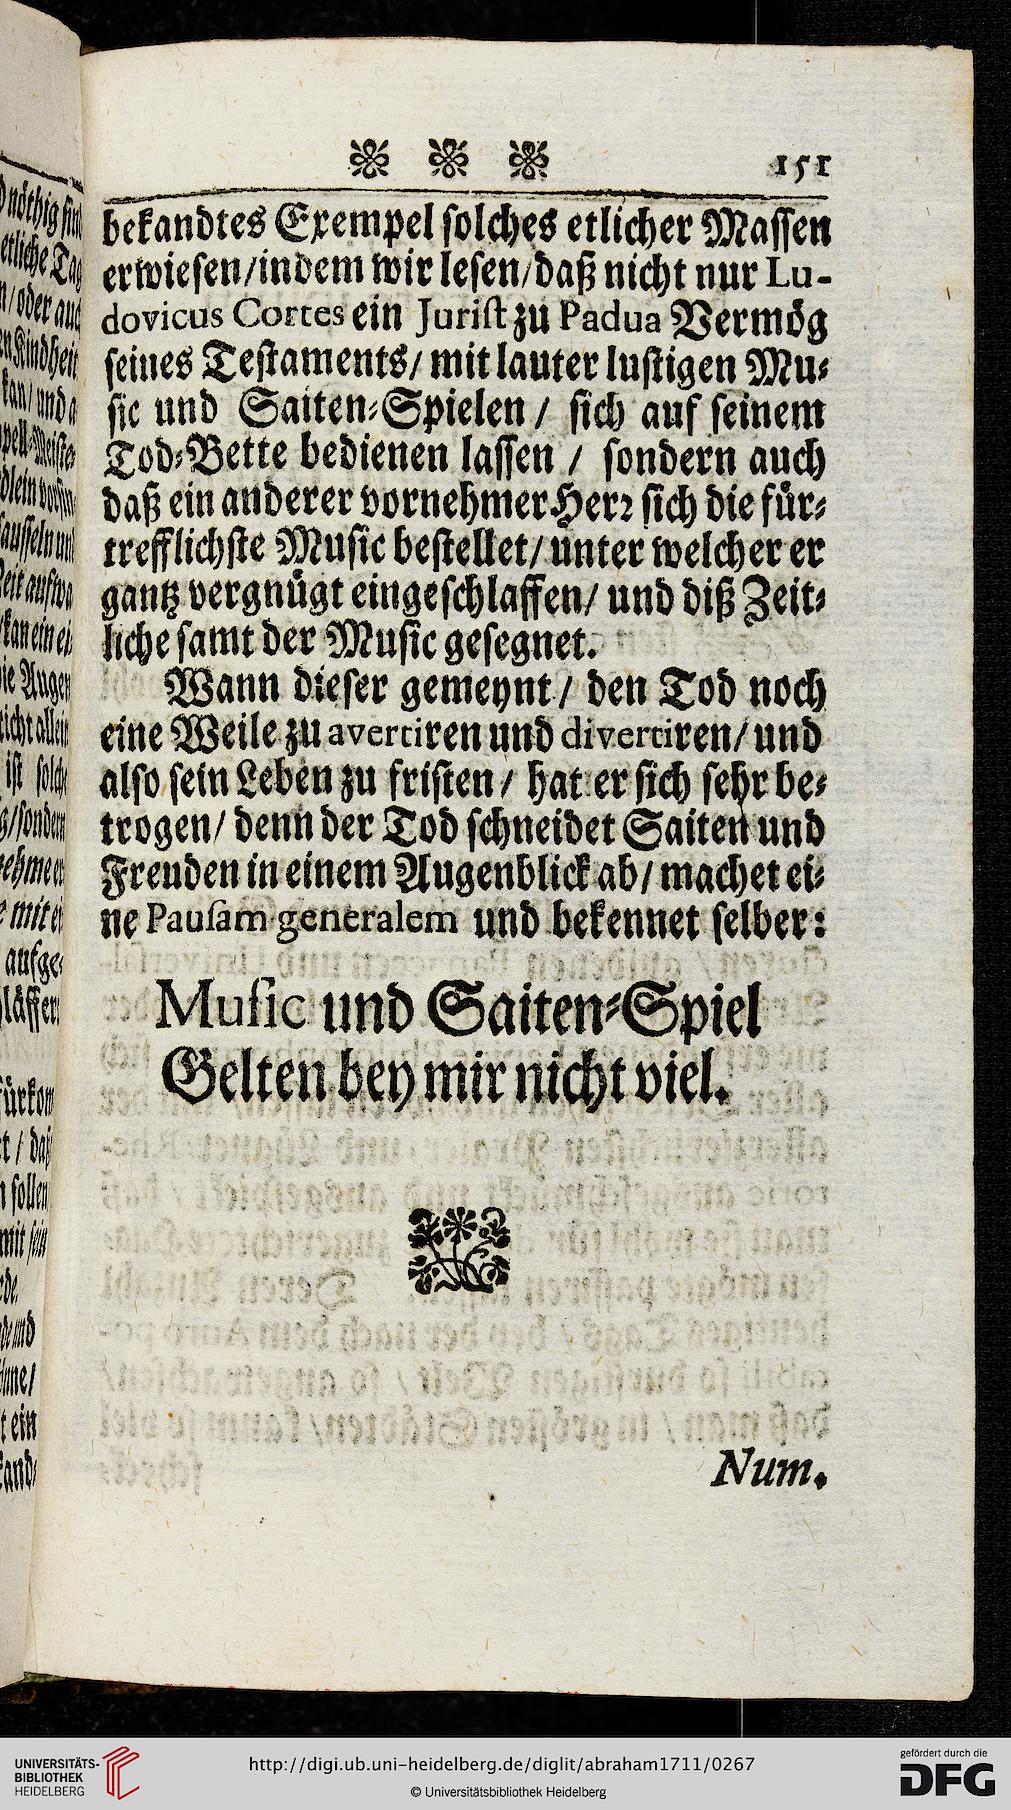 151
bekandtes Exempel solches etlicher Massen
erwiesen/indem wir lesen/daß nicht nur Lu-
dovicus Cortes ein Jurist zu Padua Vermög
seines Testaments/ mit lauter lustigen Mu-
sic und Saiten-Spielen / sich auf seinem
Tod-Bette bedienen lassen / sondern auch
daß ein anderer vornehmer Herr sich die für-
trefflichste Music bestellet/ unter welcher er
gantz vergnügt eingeschlaffen/ und diß Zeit-
liche samt der Music gesegnet.
Wann dieser gemeynt / den Tod noch
eine Weile zu avertiren und divertiren/ und
also sein Leben zu fristen / hat er sich sehr be-
trogen/ denn der Tod schneidet Saiten und
Freuden in einem Augenblick ab/ machet ei-
ne Pausam generalem und bekennet selber:
Music und Saiten-Spiel
Gelten bey mir nicht viel.
Num.
UNIVERSITÄTS-
BIBLIOTHEK
HEIDELBERG
http://digi.ub.uni-heidelberg.de/diglit/abraham1711/0267
© Universitätsbibliothek Heidelberg
gefördert durch die
DFG